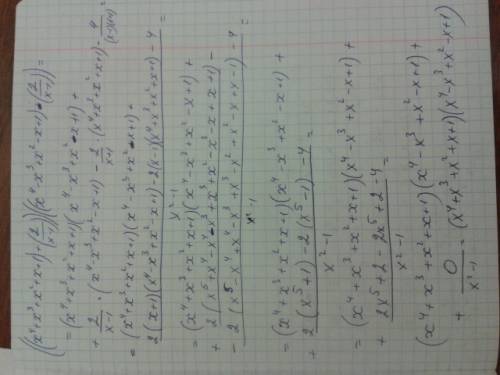 ((x⁴+x³+x²+x+1)+(2/(x-1)))((x⁴-x³+x²-x+1)-(2/(x+1)))=
=(x⁴+x³+x²+x+1)(x⁴-x³+x²-x+1)+
+ 2/(x-1) · (x⁴-x³+x²-x+1) - 2/(x+1) · (x⁴+x³+x²+x+1) - 4/((x-1)(x+1)) =
=(x⁴+x³+x²+x+1)(x⁴-x³+x²-x+1)+
(2(x+1)(x⁴-x³+x²-x+1)-2(x-1)(x⁴+x³+x²+x+1)-4)/(x²-1) =
=(x⁴+x³+x²+x+1)(x⁴-x³+x²-x+1)+
+ 2(x⁵+x⁴-x⁴-x³+x³+x²-x²-x+x+1)-
- 2(x⁵-x⁴+x⁴-x³+x³-x²+x²-x+x-1)-4 =
x²-1
=(x⁴+x³+x²+x+1)(x⁴-x³+x²-x+1)+
+ (2(x⁵+1)-2(x⁵-1)-4)/(x²-1) =
=(x⁴+x³+x²+x+1)(x⁴-x³+x²-x+1)+
+ (2x⁵+2-2x⁵+2-4)/(x²-1) =
(x⁴+x³+x²+x+1)(x⁴-x³+x²-x+1)+
+ 0/(x²-1) = (x⁴+x³+x²+x+1)(x⁴-x³+x²-x+1)